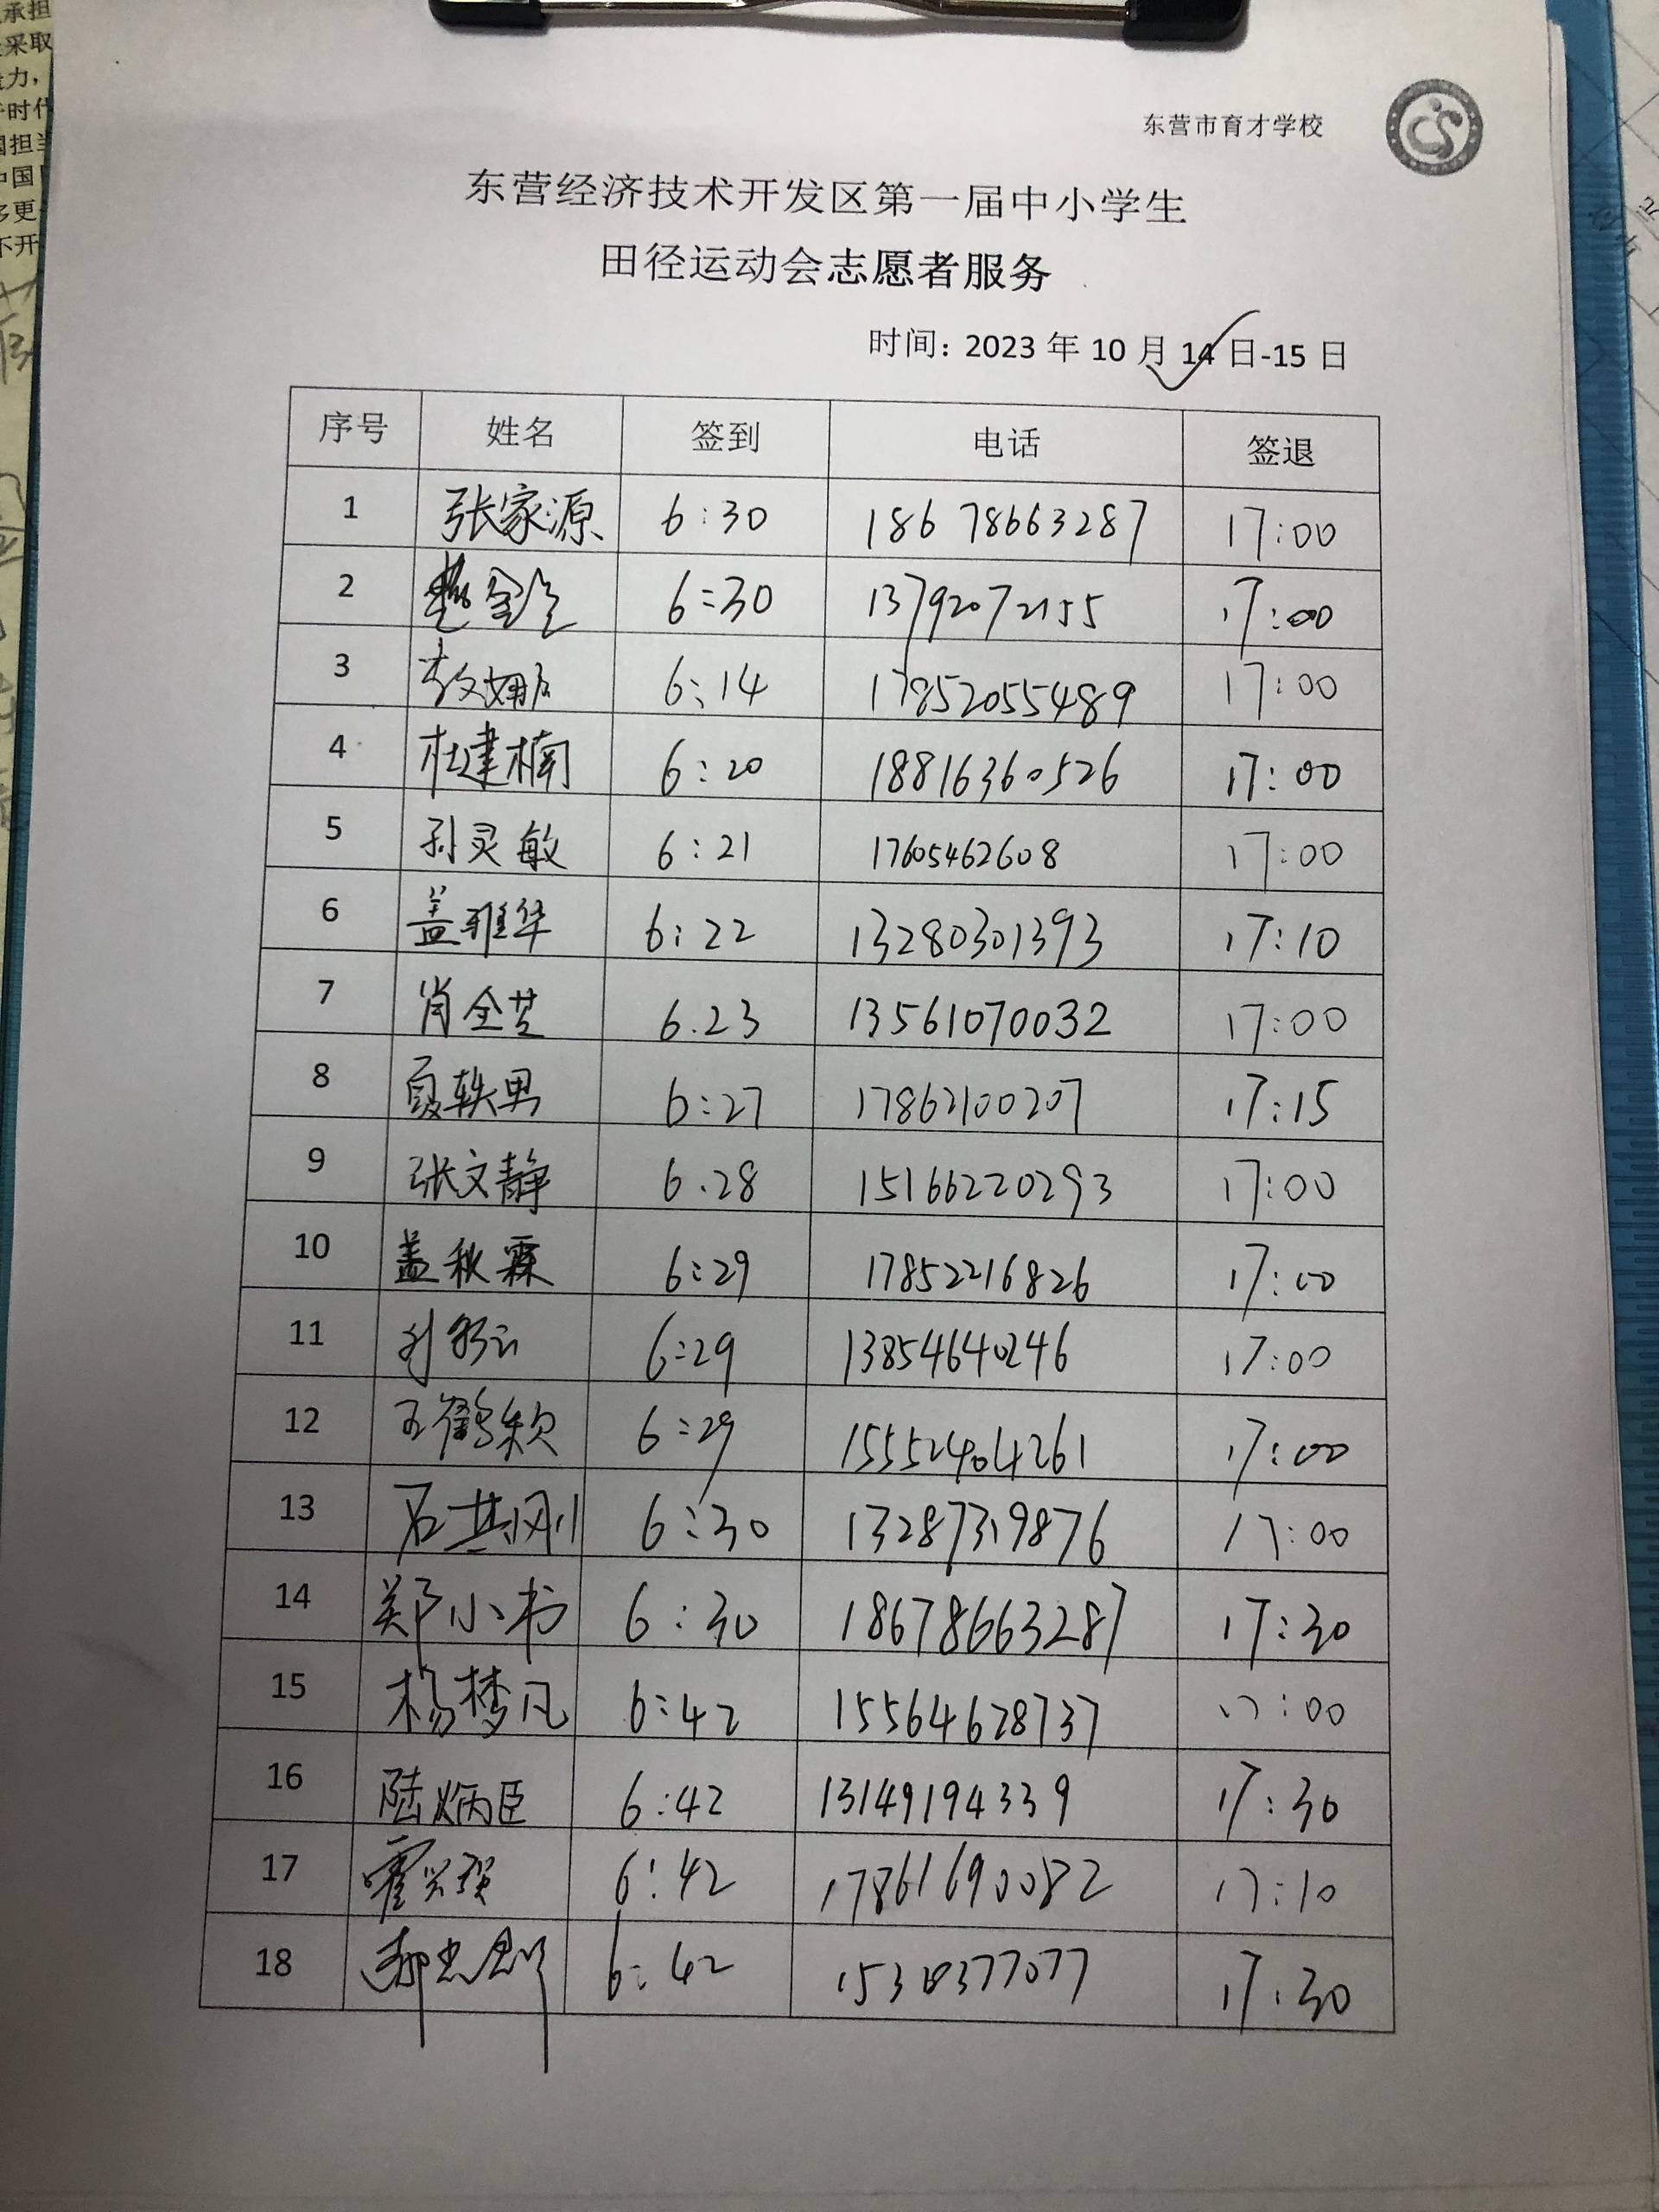 东营市育才学校
东营经济技术开发区第一届中小学生
田径运动会志愿者服务
时间：2023 年 10 月 14 日-15 日
序号 姓名 签到 电话 签退
1 张家源 6:30 18678663287 17:00
2 6:30 13792072155 17:00
3 6:14 17852055489 17:00
4 杜建楠 6:20 18816360526 17:00
5 孙灵敏 6:21 17605462608 17:00
6 盖雅华 6:22 13280301393 17:10
7 肖全芝 6.23 13561070032 17:00
8 夏轶男 6:27 17862100207 17:15
9 张文静 6.28 15166220293 17:00
10 盖秋霖 6:29 17852216826 17:00
11 6:29 13854640246 17:00
12 王鹤颖 6:29 15552464261 17:00
13 石共刚 6:30 13287319876 17:00
14 郑小书 6:30 18678663287 17:30
15 杨梦凡 6:42 15564628737 17:00
16 陆炳臣 6:42 13149194339 17:30
17 6:42 17861690082 17:10
18 6:42 17:30